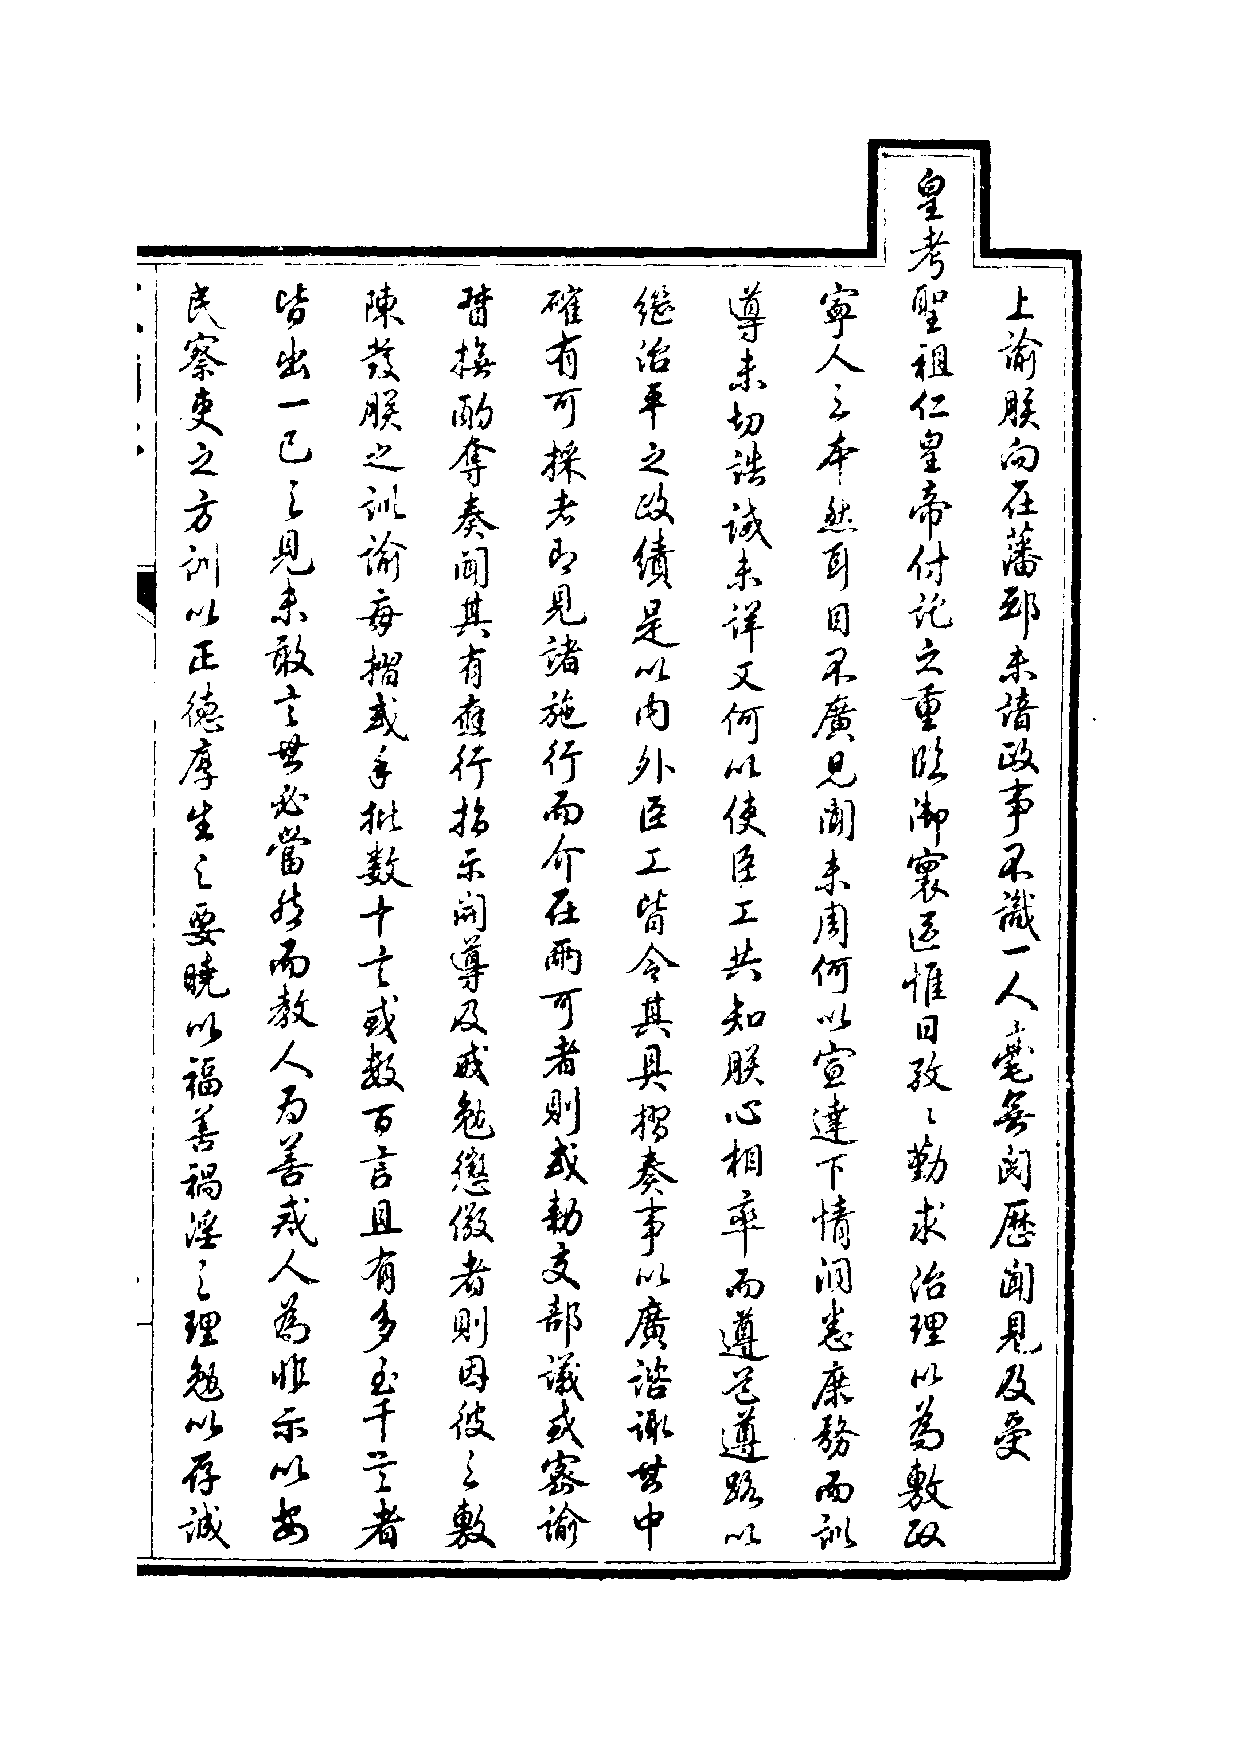 上諭朕向在藩邸未諳政事不識一人毫無閱歷聞見及受
皇考聖祖仁皇帝付託之重臨御寰區惟日孜〻勤求治理以為敷政
寧人之本然耳目不廣見聞未周何以宣達下情洞悉庶務而訓
導未切誥誡未詳又何以使臣工共知朕心相率而遵道遵路以
繼治平之政績是以內外臣工皆令其具摺奏事以廣諮諏其中
確有可採者即見諸施行而介在兩可者則或勅交部議或密諭
督撫酌奪奏聞其有應行指示開導及戒勉懲儆者則因彼之敷
陳發朕之訓諭每摺或手批數十言或數百言且有多至千言者
皆出一己之見未敢言其必當然而教人為善戒人為非示以安
民察吏之方訓以正德厚生之要曉以福善禍淫之理勉以存誠